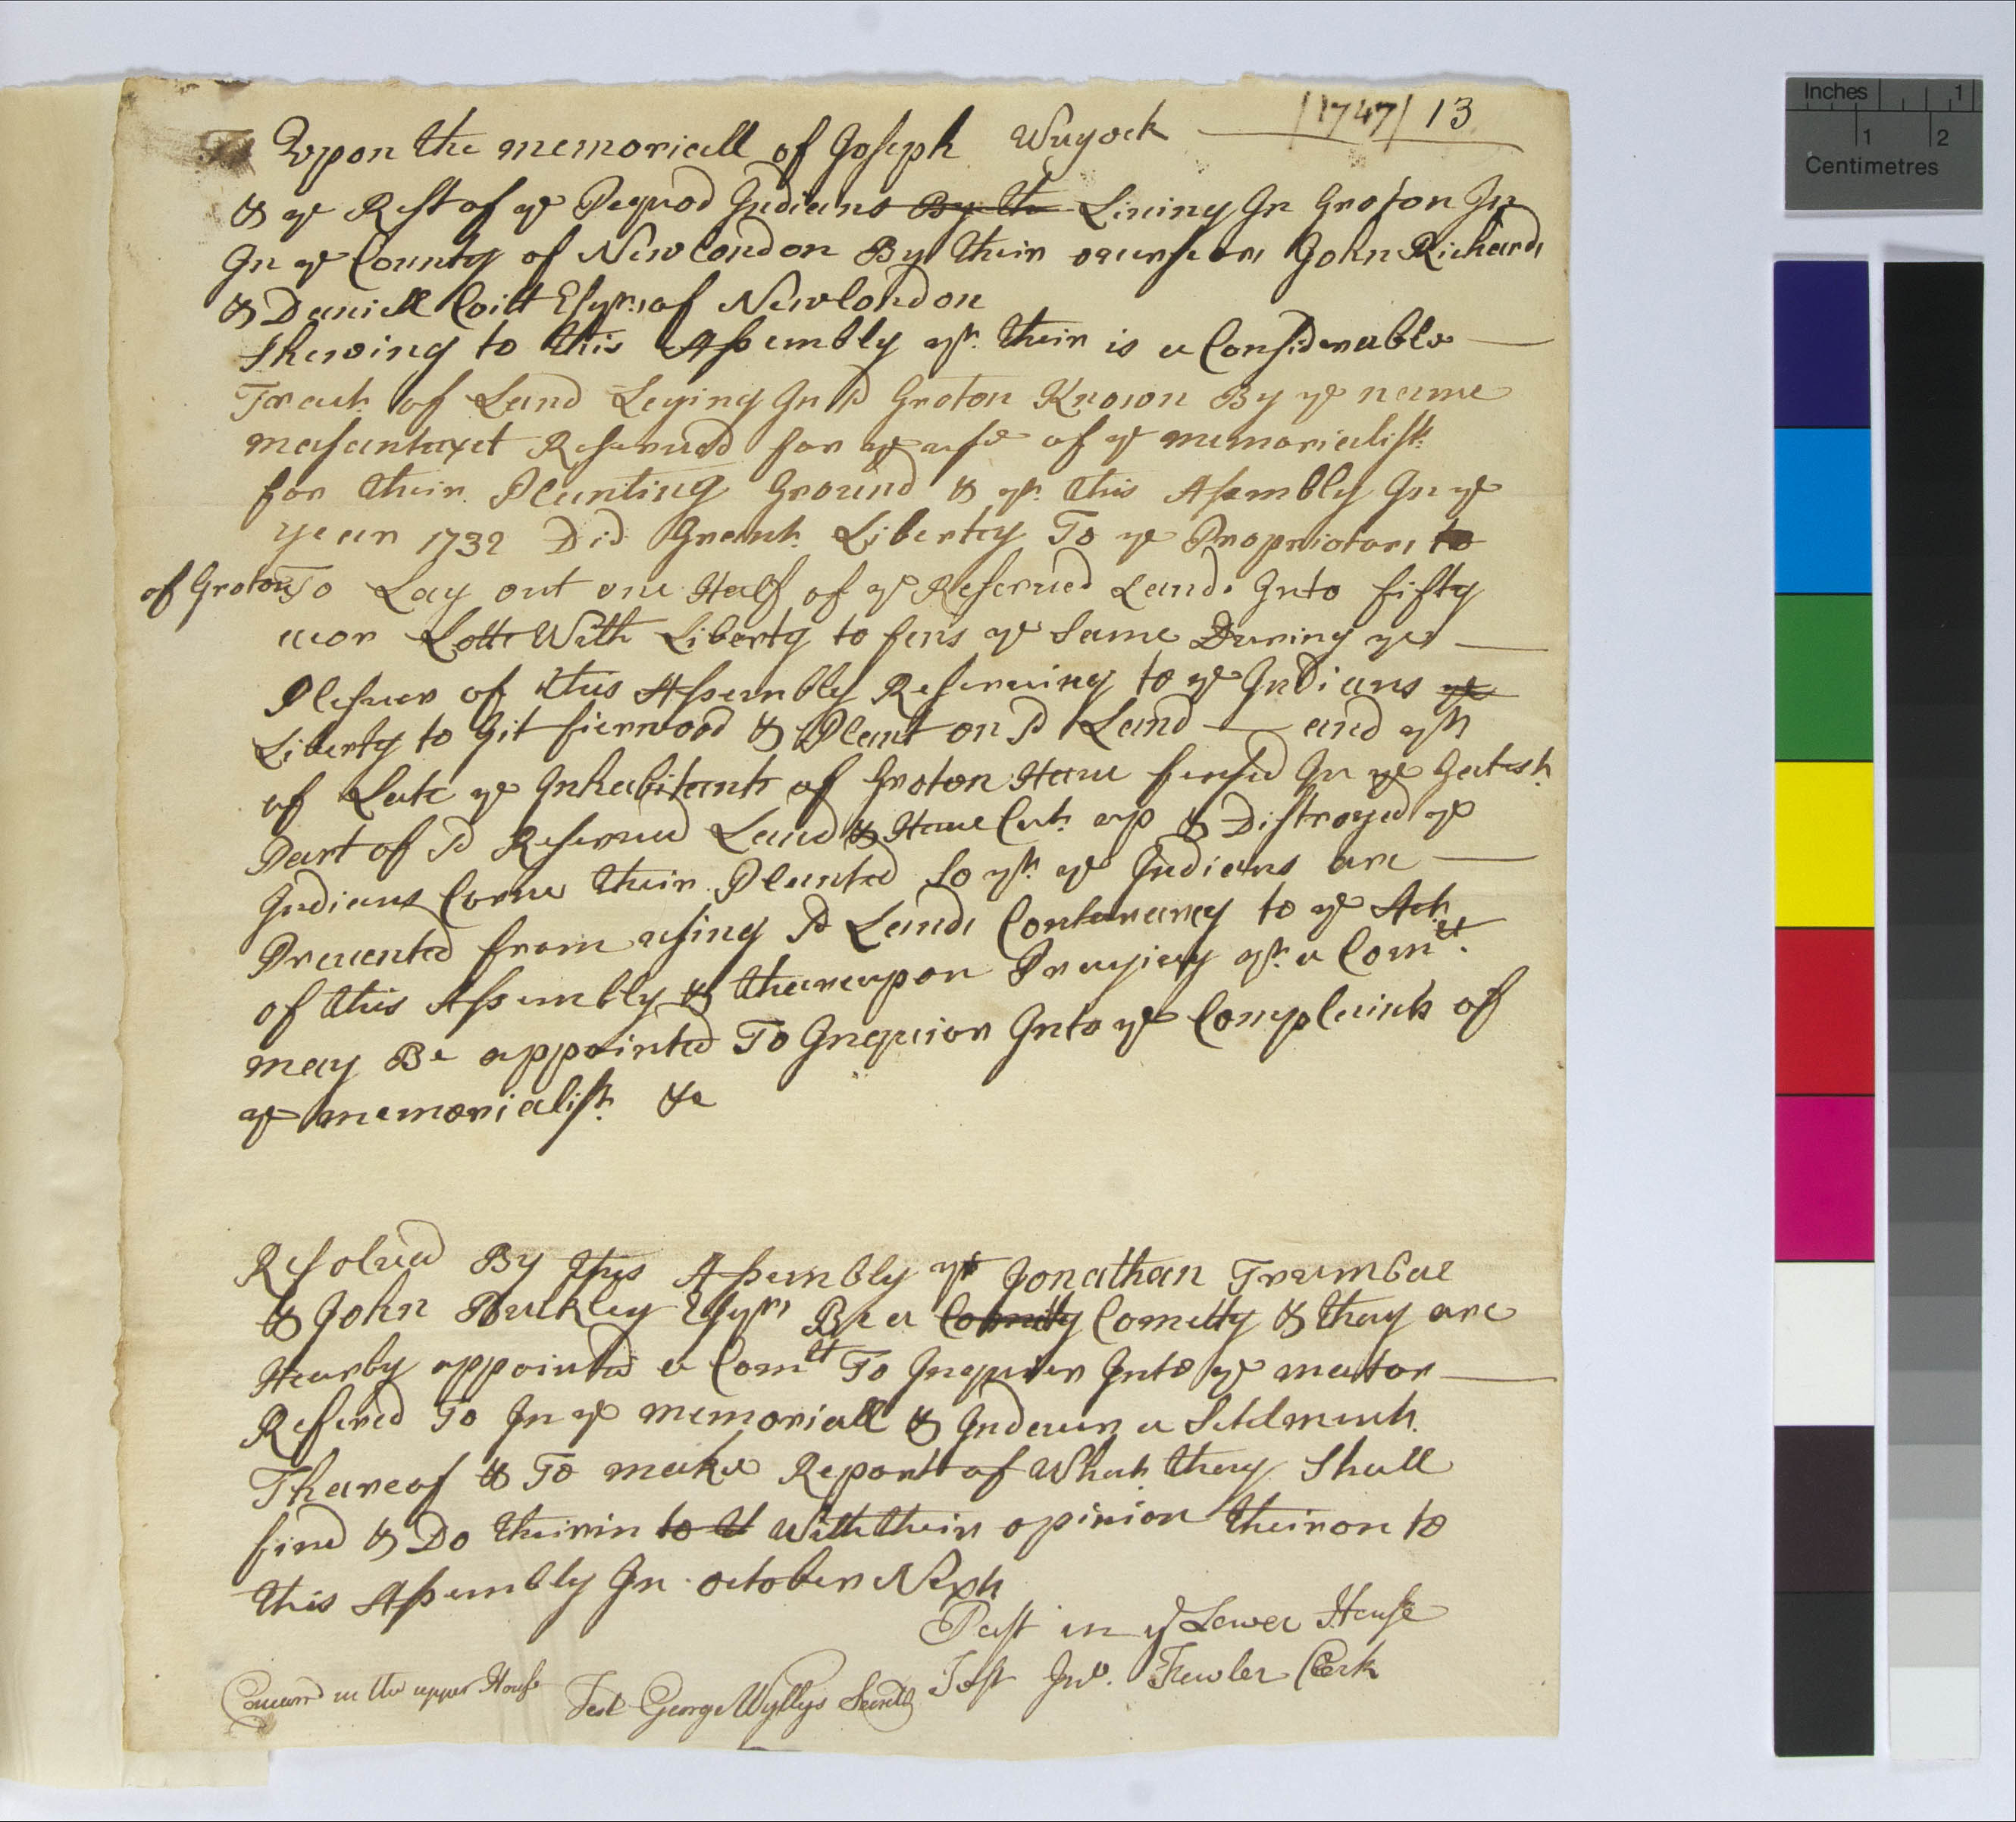 Upon the memoriall of Joseph Wuyock /1747/ 13
& ye Rest of ye Pequod Indians By the Liuing In Groton In
In ye County of Newlondon By their ouerseors John Richards
& Daniell Coitt Esqrs of Newlondon
Shewing to this Assembly yt their is a Considerable
Tract of Land Leying In sd Groton Known By ye name
masantuxet Reserued for ye use of ye memorialist
for their Planting Ground & yt this Assembly In ye
year 1732 Did Grant Liberty To ye Proprietors to
of Groton To Lay out one Half of ye Reserued Lands Into fifty
acor Lotts With Liberty to fens ye same During ye
Plesuer of this Assembly Reserueing to ye Indians ye
Liberty to Git fierwood & Plant on sd Land and yt
of Late ye Inhabitants of Groton Haue fensed In ye Gratest
Part of sd Reserued Land & Haue Cut up & Distroyed ye
Indians Corne their Planted so yt ye Indians are
Preuented from using sd Lands Conterarey to ye Act
of this Assembly & thareupon Prayieg yt a Comtt
may Be appointed To Inquior Into ye Complaints of
ye memorialist &c
Resolued By this Assembly yt Jonathan Trumble
& John Bulkley Esqrs Be a Comitty Comitty & they are
Hearby appointed a Comtt To Inquier Into ye mator
Refered To In ye memoriall & Indeuer a Setelment
Thareof & To make Report of What they Shall
find & Do theirin to th With their opinion theiron to
this Assembly In october Next
Past in ye Lower House
Test Jno. Fowler Clerk
Concurrd in the upper House Test George Wyllys Secretry
Inches 1
1 2
Centimetres